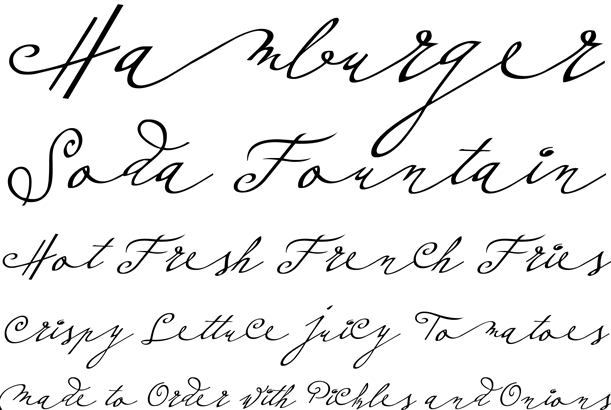 Hamburger
Soda Fountain
Hot Fresh French Fries
Crispy Lettuce Juicy Tomatoes
made to Order with Pickles and Onions